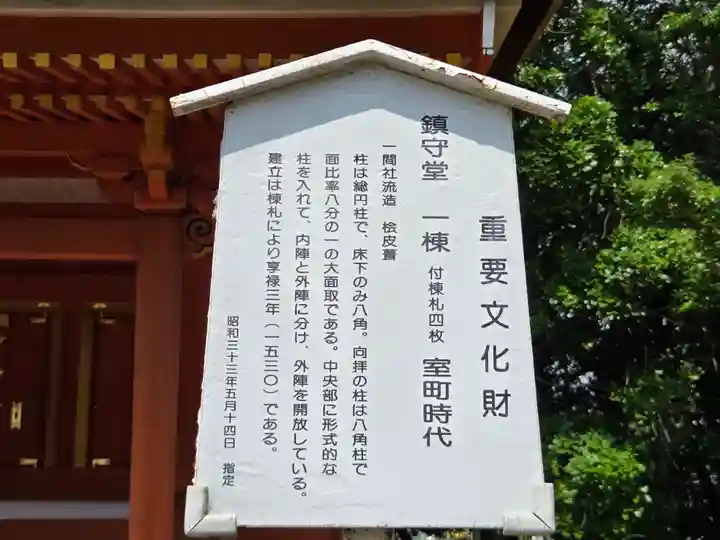 重要文化財
鎮守堂 一棟 付棟札四枚 室町時代
一間社流造 桧皮葺
柱は総円柱で、床下のみ八角。向拝の柱は八角柱で
面比率八分の一の大面取である。中央部に形式的な
柱を入れて、内陣と外陣に分け、外陣を開放している。
建立は棟札により享禄三年(一五三〇)である。
昭和三十三年五月十四日 指定